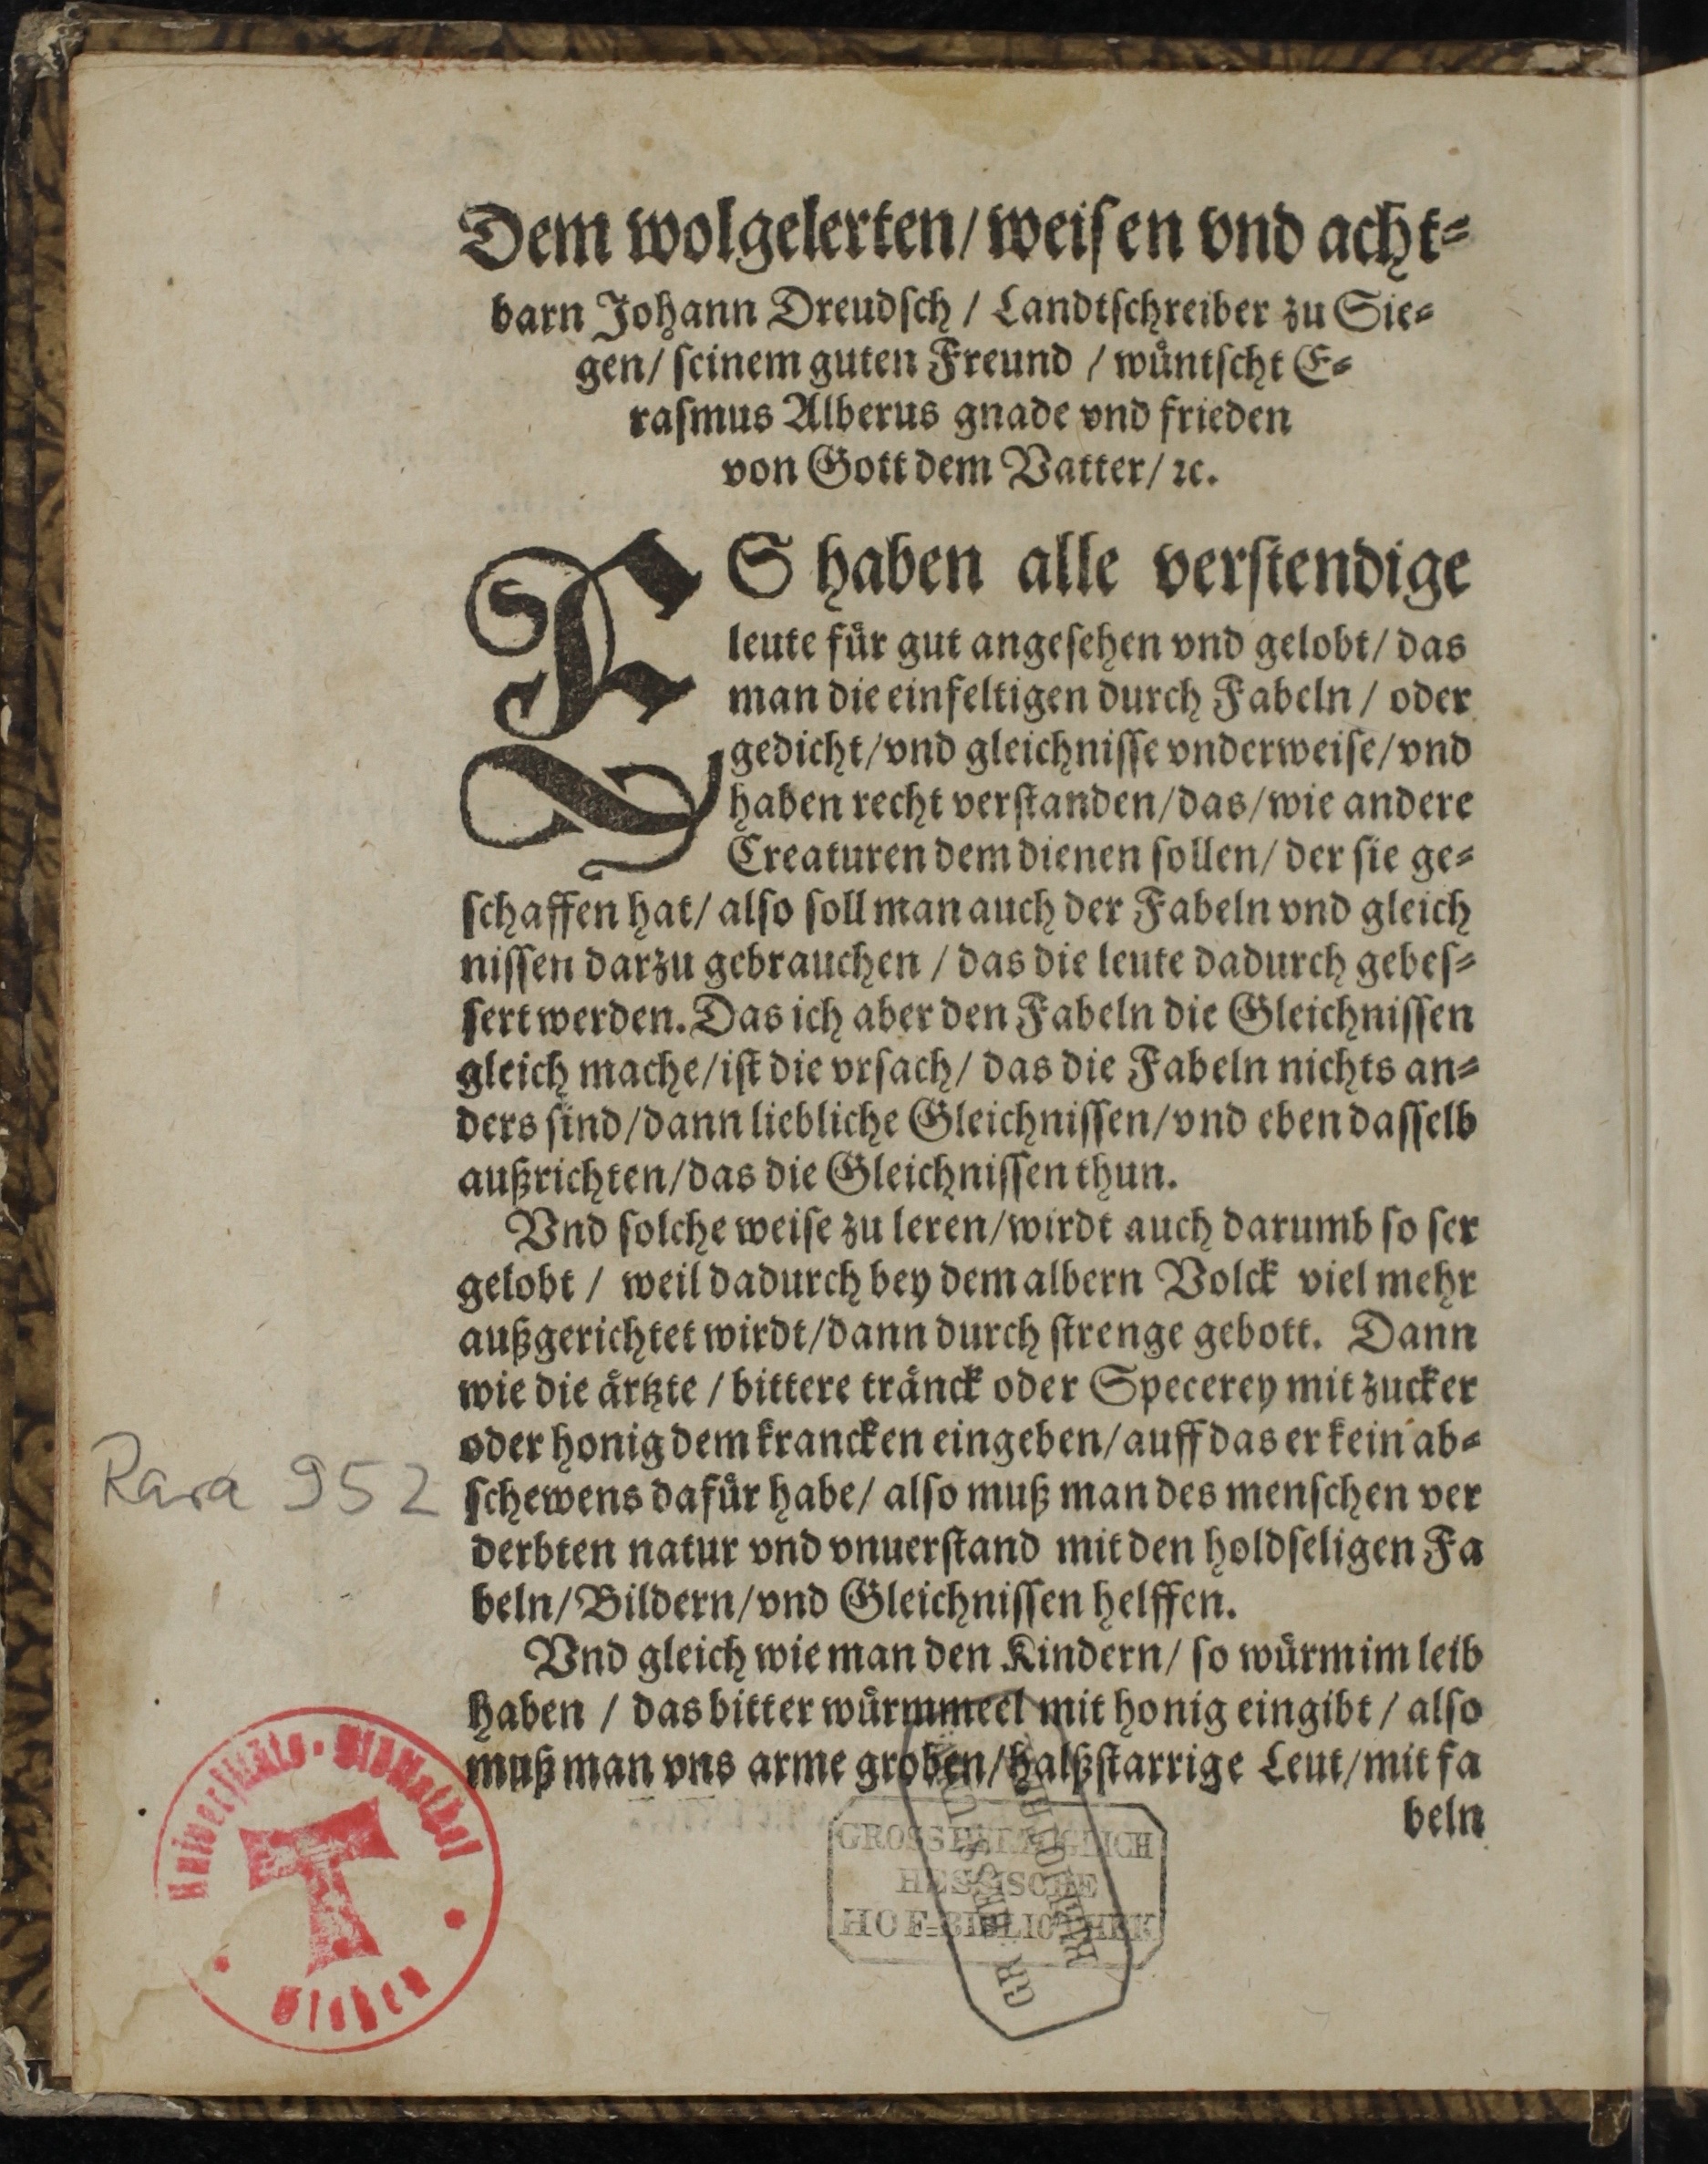 Dem wolgelerten/ weiſen vnd acht⸗
barn Johann Dreudſch / Landtſchreiber zu Sie⸗
gen/ ſeinem guten Freund / wuͤntſcht E⸗
raſmus Alberus gnade vnd frieden
von Gott dem Vatter/ ꝛc.
ES haben alle verſtendige
leute fuͤr gut angeſehen vnd gelobt/ das
man die einfeltigen durch Fabeln / oder
gedicht/ vnd gleichniſſe vnderweiſe/ vnd
haben recht verſtanden/ das/ wie andere
Creaturen dem dienen ſollen/ der ſie ge⸗
ſchaffen hat/ alſo ſoll man auch der Fabeln vnd gleich
niſſen darzu gebrauchen / das die leute dadurch gebeſ⸗
ſert werden. Das ich aber den Fabeln die Gleichniſſen
gleich mache/ iſt die vrſach/ das die Fabeln nichts an⸗
ders ſind/ dann liebliche Gleichniſſen/ vnd eben daſſelb
außrichten/ das die Gleichniſſen thun.
Vnd ſolche weiſe zu leren/ wirdt auch darumb ſo ſer
gelobt / weil dadurch bey dem albern Volck viel mehr
außgerichtet wirdt/ dann durch ſtrenge gebott. Dann
wie die aͤrtzte / bittere traͤnck oder Specerey mit zucker
oder honig dem krancken eingeben/ auff das er kein ab⸗
ſchewens dafuͤr habe/ alſo muß man des menſchen ver
derbten natur vnd vnuerſtand mit den holdſeligen Fa
beln/ Bildern/ vnd Gleichniſſen helffen.
Vnd gleich wie man den Kindern/ ſo wuͤrm im leib
haben / das bitter wuͤrmmeel mit honig eingibt / alſo
muß man vns arme groben/ halßſtarrige Leut/ mit fa
beln
Rara 952
Univerſitäts-Bibliothek
Gießen
GROSSHERZOGLICH
HESSISCHE
HOF-BIBLIOTHEK